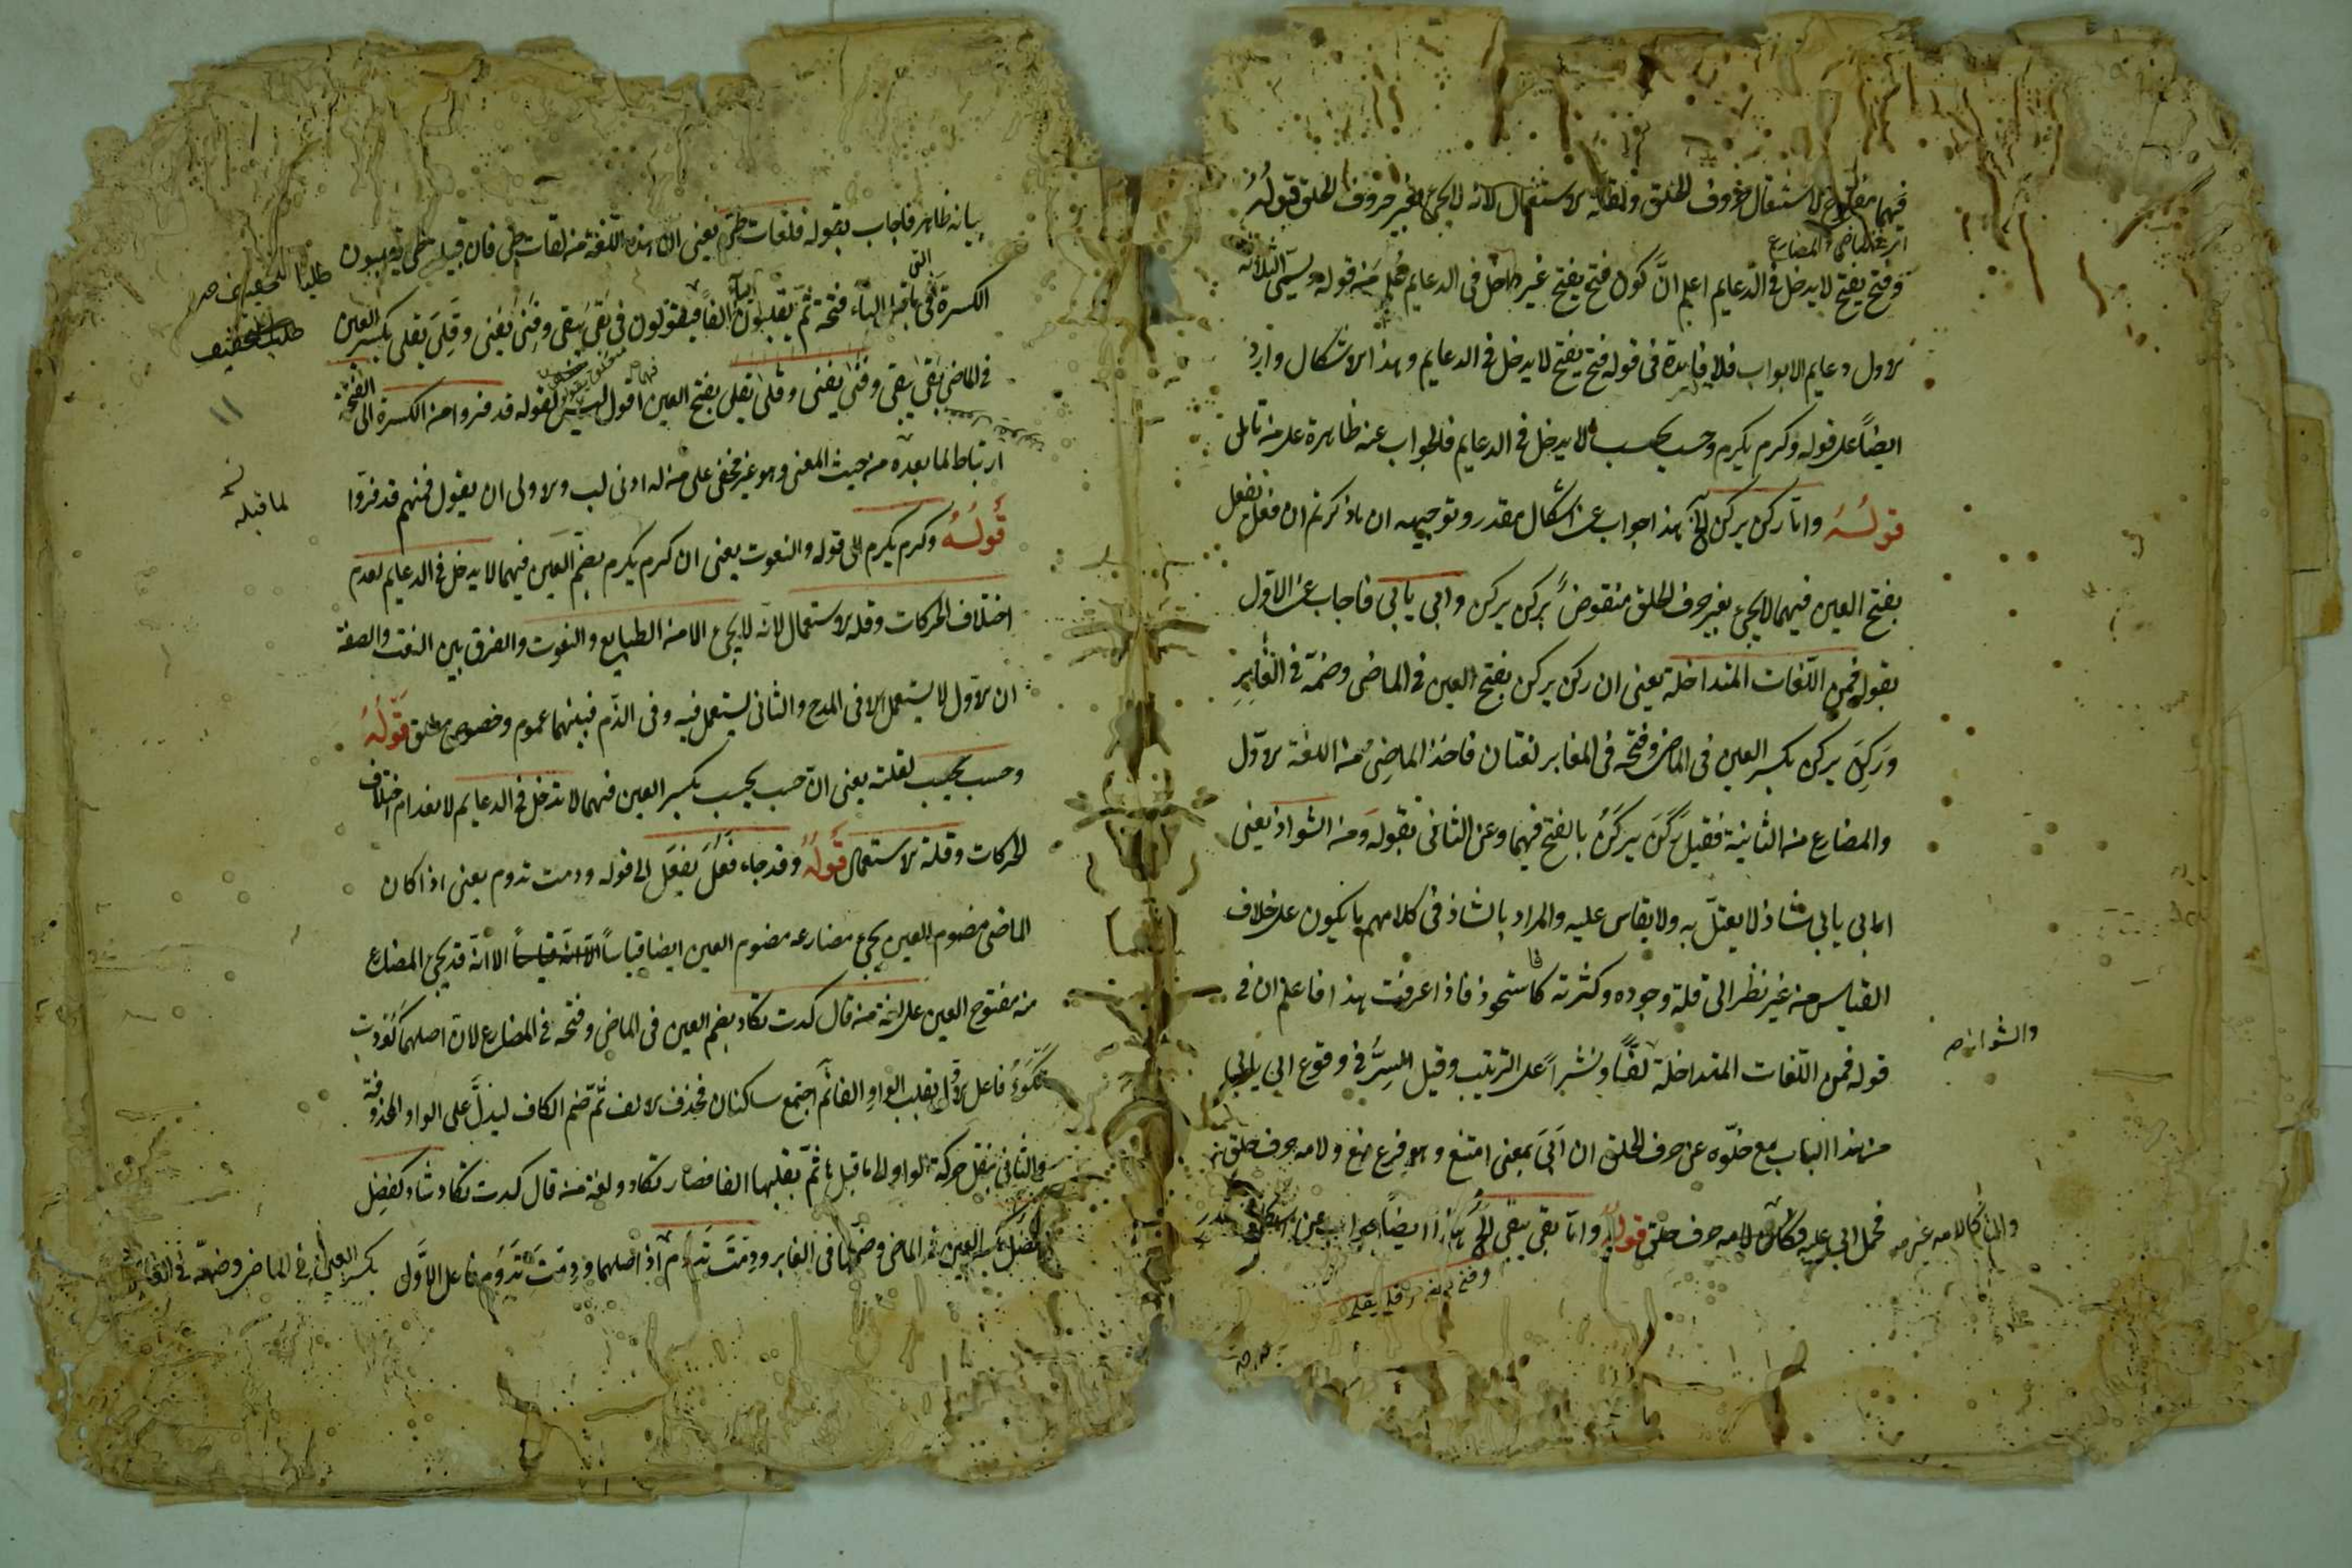 فيهما لاستثقال حروف الحلق ولقلة الاستعمال لانه لا يجئ بغير حروف الحلق قوله
اى فى الماضى والمضارع
وفتح يفتح لا يدخل فى الدعايم اعلم ان كون فتح يفتح غير داخل فى الدعايم علم من قوله وسمى الثلاثة
الاول دعايم الابواب فلا فايدة فى قوله فتح يفتح لا يدخل فى الدعايم وهذا الاشكال وارد
ايضاً على قوله وكرم يكرم وحسب يحسب لا يدخل فى الدعايم فالجواب عنه ظاهرة على من تامل
قولُهُ واما ركن يركن الخ هذا جواب عن اشكال مقدر وتوجيهه ان ما ذكرتم ان فعل يفعل
بفتح العين فيهما لا يجئ بغير حرف الحلق منقوضٌ بركن يركن وابى يابى فاجاب عن الاوّل
بقوله فمن اللّغات المتداخلة يعنى ان ركن يركن بفتح العين فى الماضى وضمّه فى الغابِرِ
ورَكِنَ يركن بكسر العين فى الماضى وفتحه فى الغابر لغتان فاخذ الماضِى من اللغة الاوّل
والمضارع من الثانية فقيل رَكَنَ يَركَنُ بالفتح فيهما وعن الثانى بقوله ومن الشواذ يعنى
ابى يابى شاذ لا يعتلّ به ولا يقاس عليه والمراد بالشاذ فى كلامهم ما يكون على خلاف
القياس من غير نظر الى قلة وجوده وكثرته كاستحوذ فاذا عرفت هذا فاعلم ان فى
والشواذ صح
قوله فمن اللّغات المتداخلة لفّاً ونشراً على الترتيب وقيل السِرُّ فى وقوع ابى يابى
من هذا الباب مع خلوّه عن حرف الحلق ان اَبَىَ بمعنى امتنع وهو فرع منع ولامه حرف حلق
فحمل ابى عليه فكان لامه حرف حلق قوله واما بقى يبقى الخ هذا ايضاً جواب عن
بيانه ظاهر فاجاب بقوله فلغات طى يعنى ان هذه اللّغة من لغات طى فان قبيلة طى يقلبون
الكسرة التى ما قبل الياء فتحة ثمّ يقلبون الياء الفاً فيقولون فى بَقِىَ يبقى وفَنِىَ يَفنى وقَلِىَ يَقلى بكسر العين
فى الماضى بَقَى يبقى وفَنَى يفنى وقَلَى يقلى بفتح العين فيهما اقول ليس لقوله قد فروا من الكسرة الى الفتحة
ارتباط لما بعده من حيث المعنى وهو غير مخفى على من له ادنى لب والاولى ان يقول فمنهم قد فروا
لما قبله
قَولُهُ وكرم يكرم الى قوله والنعوت يعنى ان كرم يكرم بضم العين فيهما لا يدخل فى الدعايم لعدم
اختلاف الحركات وقلة الاستعمال لانّه لا يجئ الا من الطبايع والنعوت والفرق بين النعت والصفة
ان الاوّل لا يستعمل الا فى المدح والثانى يستعمل فيه وفى الذم فبينهما عموم وخصوص مطلق قَولُهُ
وحسب يحسب لقلته يعنى ان حسب يحسب بكسر العين فيهما لا تدخل فى الدعايم لانعدام اختلاف
الحركات وقلة الاستعمال قَولُهُ وقد جاء فَعُلَ يَفعَل الى قوله ودمت تدوم يعنى اذا كان
الماضى مضموم العين يجئ مضارعه مضموم العين ايضا قياساً الا انّه قد يجئ المضارع
منه مفتوح العين على لغة من قال كدت تكاد بضم العين فى الماضى وفتحه فى المضارع لان اصلهما كَوُدت
تَكْوَدُ فاعل الاوّل بقلب الواو الفا ثم اجتمع ساكنان فحذف الالف ثمّ ضم الكاف ليدلّ على الواو المحذوفة
والثانى بنقل حركة الواو الى ما قبلها ثمّ بقلبها الفا فصار تكاد ولغة من قال كدت تكاد شاد كفضِل
يفضُل بكسر العين فى الماضى وضمها فى الغابر ودِمتَ تدوم اذ اصلهما دوِمتَ تَدوُم فاعل الاوّل
بكسر العين فى الماضى وضمه فى الغابر